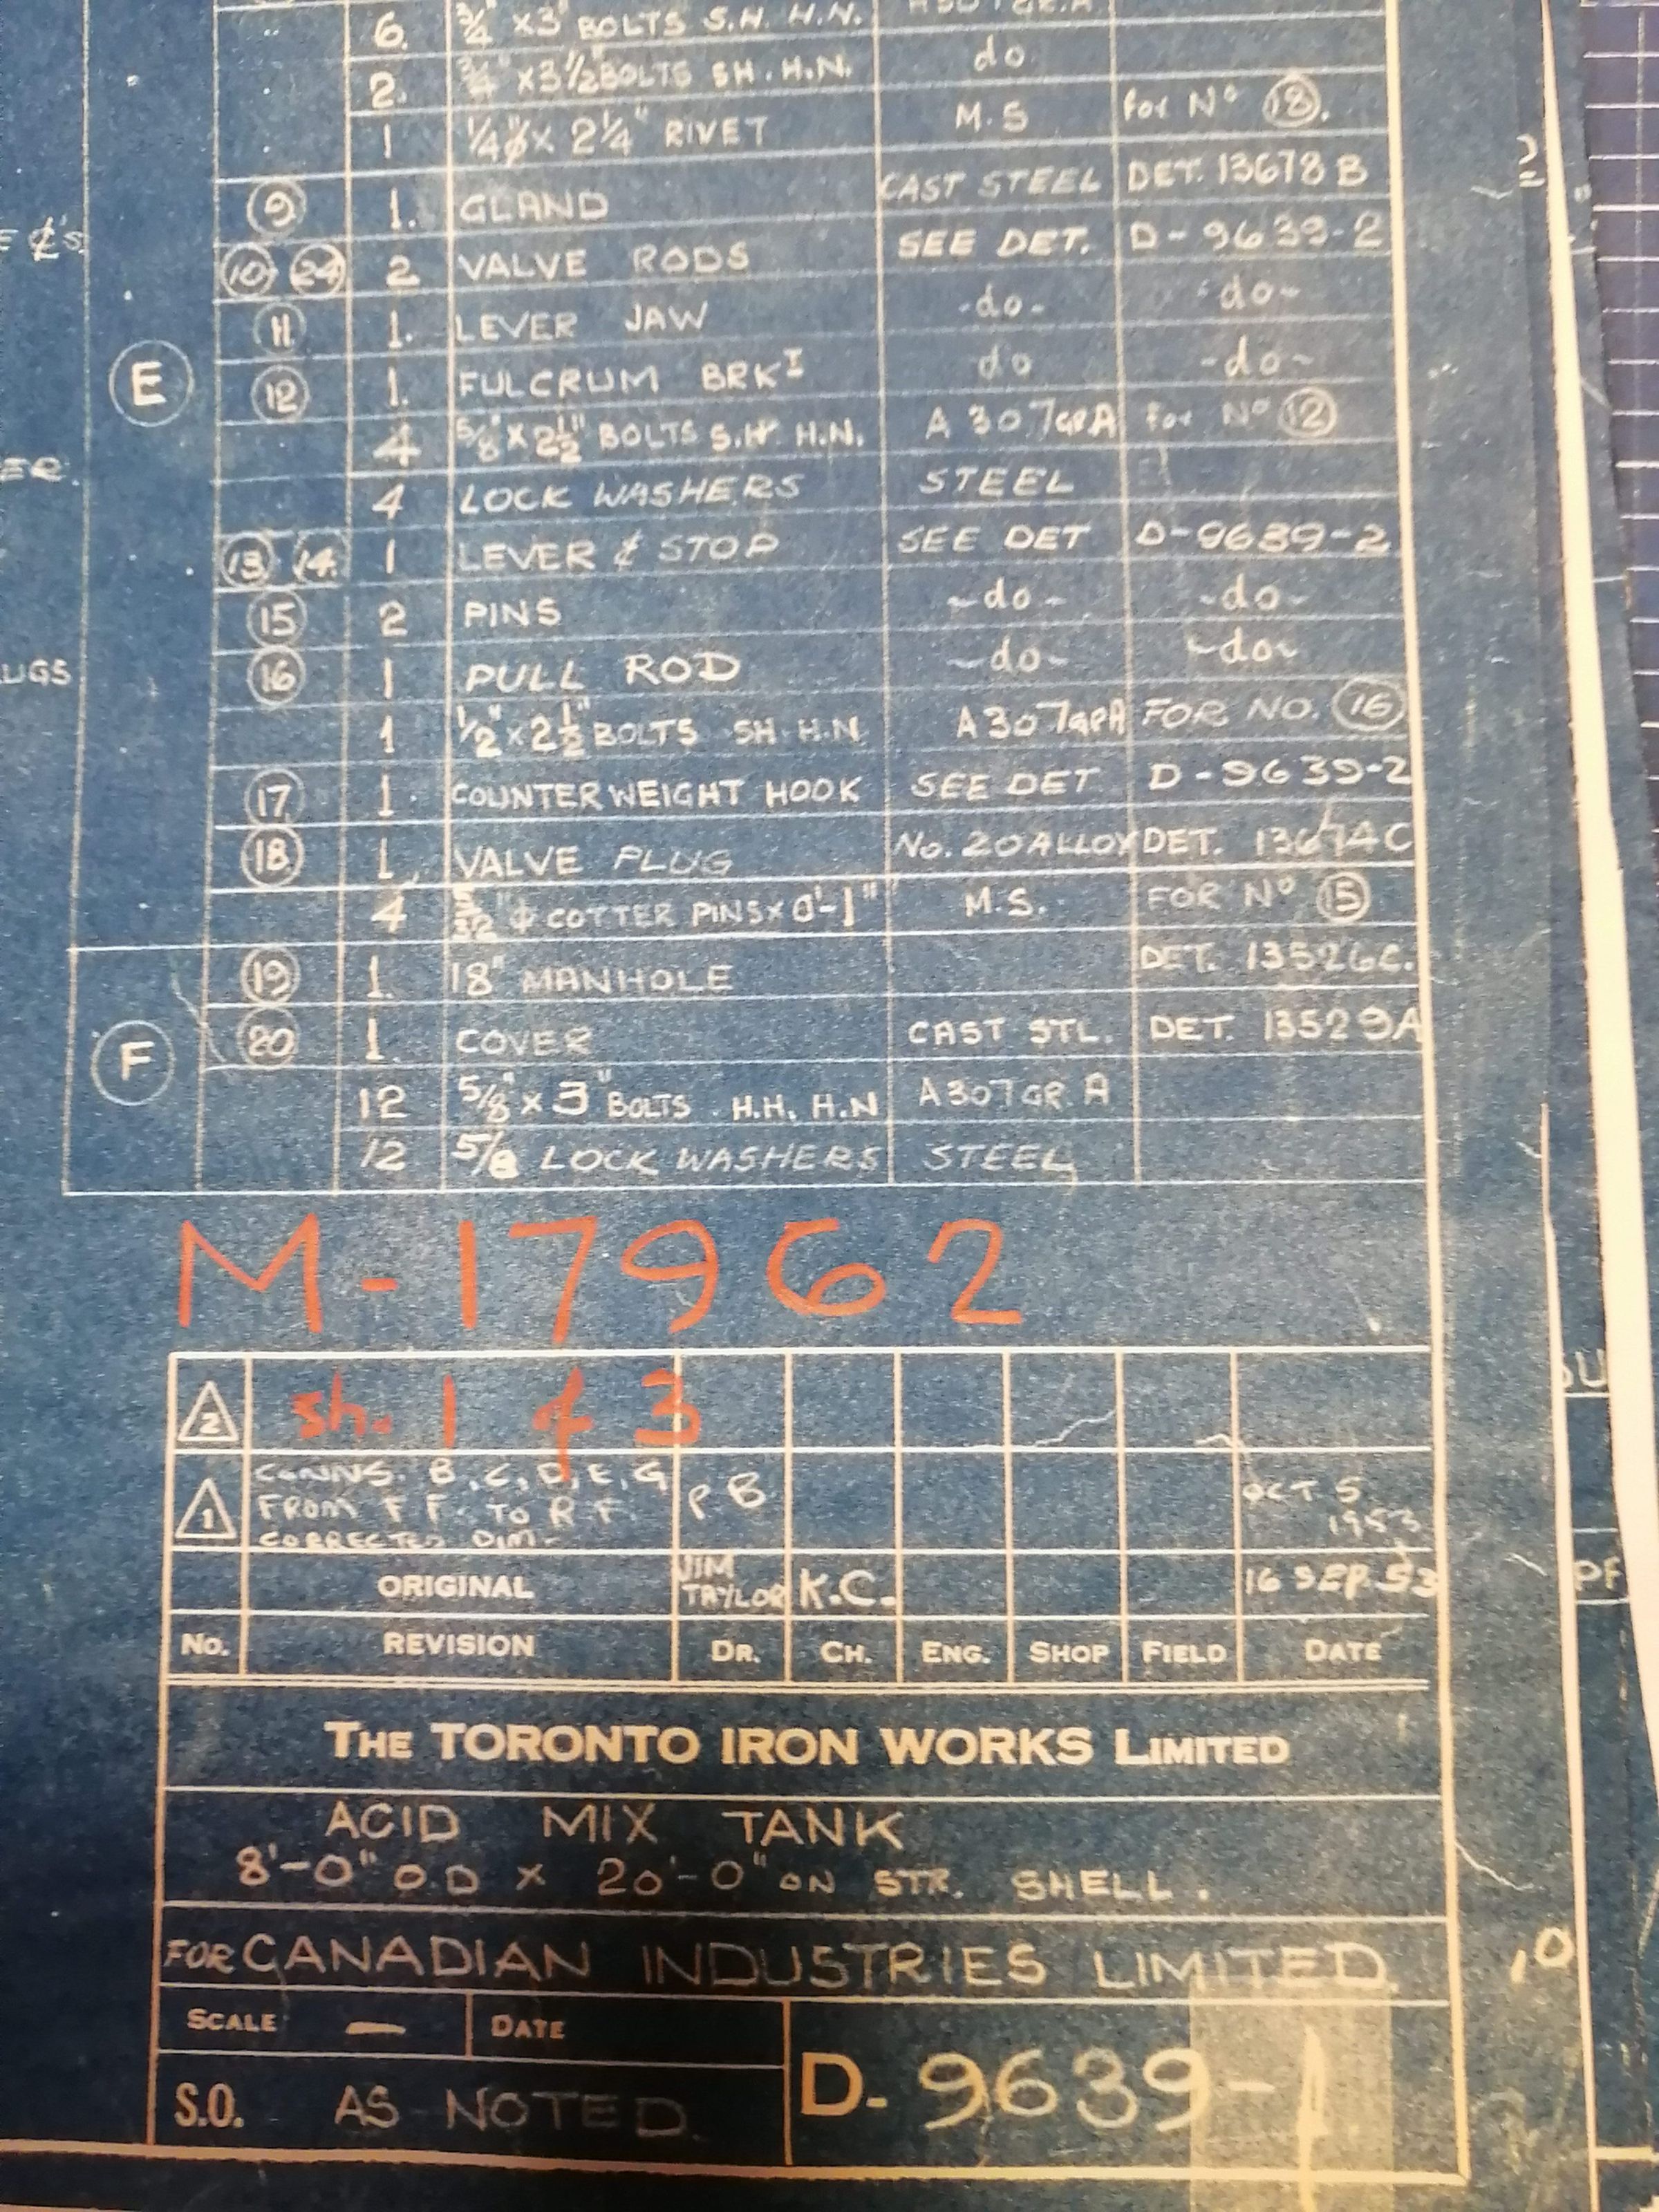 6. 3/4" X3" BOLTS S.H. H.N.
2. 3/4" X3 1/2" BOLTS SH. H.N. do
1 1/4 ϕ X 2 1/4" RIVET M.S for Nº 18.
9 1. GLAND CAST STEEL DET. 13678 B
10 24 2 VALVE RODS SEE DET. D-9639-2
11 1. LEVER JAW -do- -do-
E
12 1. FULCRUM BRKT do -do-
4 5/8" X 2 1/2" BOLTS S.H. H.N. A 307 GR A for Nº 12
ER.
4 LOCK WASHERS STEEL
13 14 1 LEVER & STOP SEE DET D-9639-2
15 2 PINS -do- -do-
UGS
16 1 PULL ROD -do- -do-
1 1/2" x 2 1/2" BOLTS SH. H.N. A307 GR A FOR NO. 16
17 1. COUNTERWEIGHT HOOK SEE DET D-9639-2
18 1. VALVE PLUG No. 20 ALLOY DET. 13674C
4 5/32" ϕ COTTER PINS x 0'-1" M.S. FOR Nº 15
19 1. 18" MANHOLE DET. 13526C.
F
20 1. COVER CAST STL. DET. 13529A
12 5/8" x 3" BOLTS. H.H. H.N A307 GR. A
12 5/8 LOCK WASHERS STEEL
M-17962
2 sh. 1 of 3
1 CONNS. B, C, D, E, G
FROM F F. TO R F.
CORRECTED DIM-
P B
OCT 5
1953
ORIGINAL JIM TAYLOR K.C. 16 SEP. 53
No. REVISION DR. CH. ENG. SHOP FIELD DATE
THE TORONTO IRON WORKS LIMITED
ACID MIX TANK
8'-0" O.D X 20'-0" ON STR. SHELL.
FOR CANADIAN INDUSTRIES LIMITED.
SCALE — DATE
S.O. AS NOTED.
D-9639-1